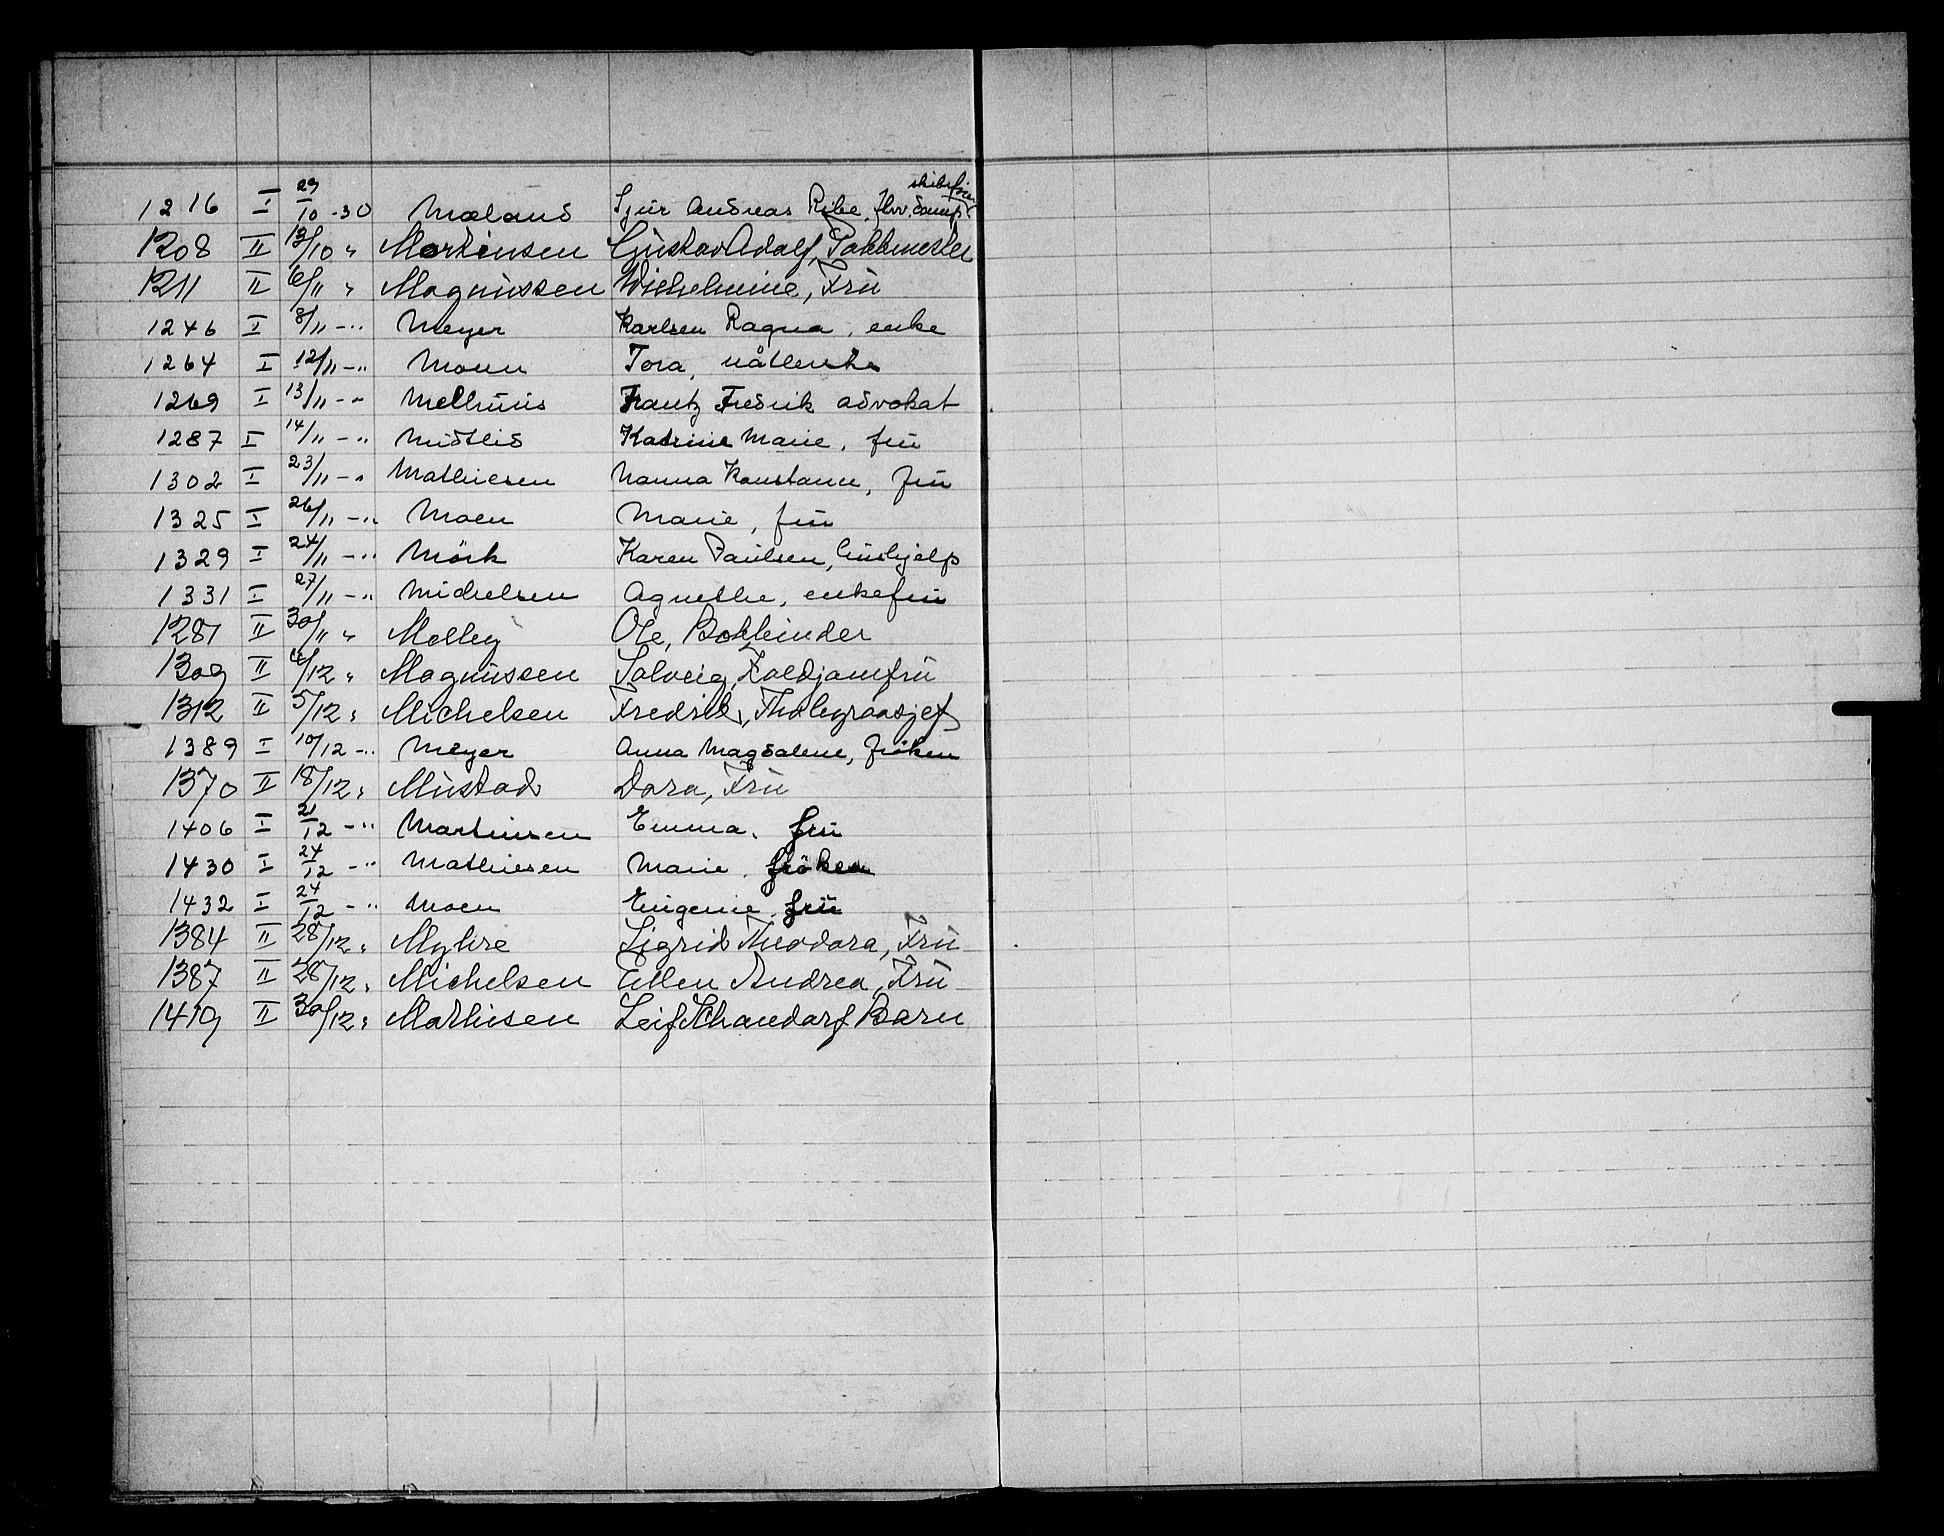 1216 I 29/10 -30 Mæland Sjur Andreas Ribe, fhv. damp. skibsfører
1208 II 13/10 " Mortensen Gustav Adolf, Pakkmester
1211 II 6/11 " Magnussen Wilhelmine, Fru
1246 I 8/11 -" Meyer Karlsen Ragna, enke
1264 I 12/11 -" Moen Tora,
1269 I 13/11 -" Melhuus Frantz Fredrik advokat
1287 I 14/11 -" Midtlid Katrine Marie, fru
1302 I 23/11 -" Mathiesen Nanna Konstance, fru
1325 I 26/11 -" Moen Marie, fru
1329 I 24/11 -" Mörk Karen Paulsen, hushjelp
1331 I 27/11 -" Michelsen Agnethe, enkefru
1281 II 30/11 " Melby Ole, Bokbinder
1309 II 4/12 " Magnussen Solveig,
1312 II 5/12 " Michelsen Fredrik,
1389 I 10/12 -" Meyer Anna Magdalene, fröken
1370 II 18/12 " Mustad Dora, Fru
1406 I 21/12 -" Martinsen Emma, fru
1430 I 24/12 -" Mathiesen Marie, fröken
1432 I 24/12 -" Moen Eugenie, fru
1384 II 28/12 " Myhre Sigrid Theodora, Fru
1387 II 28/12 " Michelsen Ellen Andrea, Fru
1419 II 30/12 " Mathisen Leif Schandorf Barn